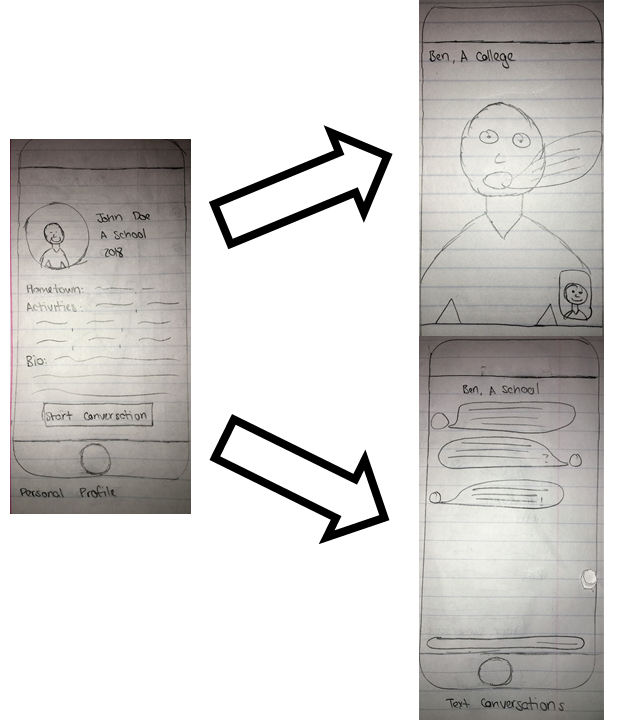 John Doe
A School
2018
Hometown:
Activities:
Bio:
Start Conversation
Personal Profile
Ben, A College
Ben, A School
?
!
Text Conversations